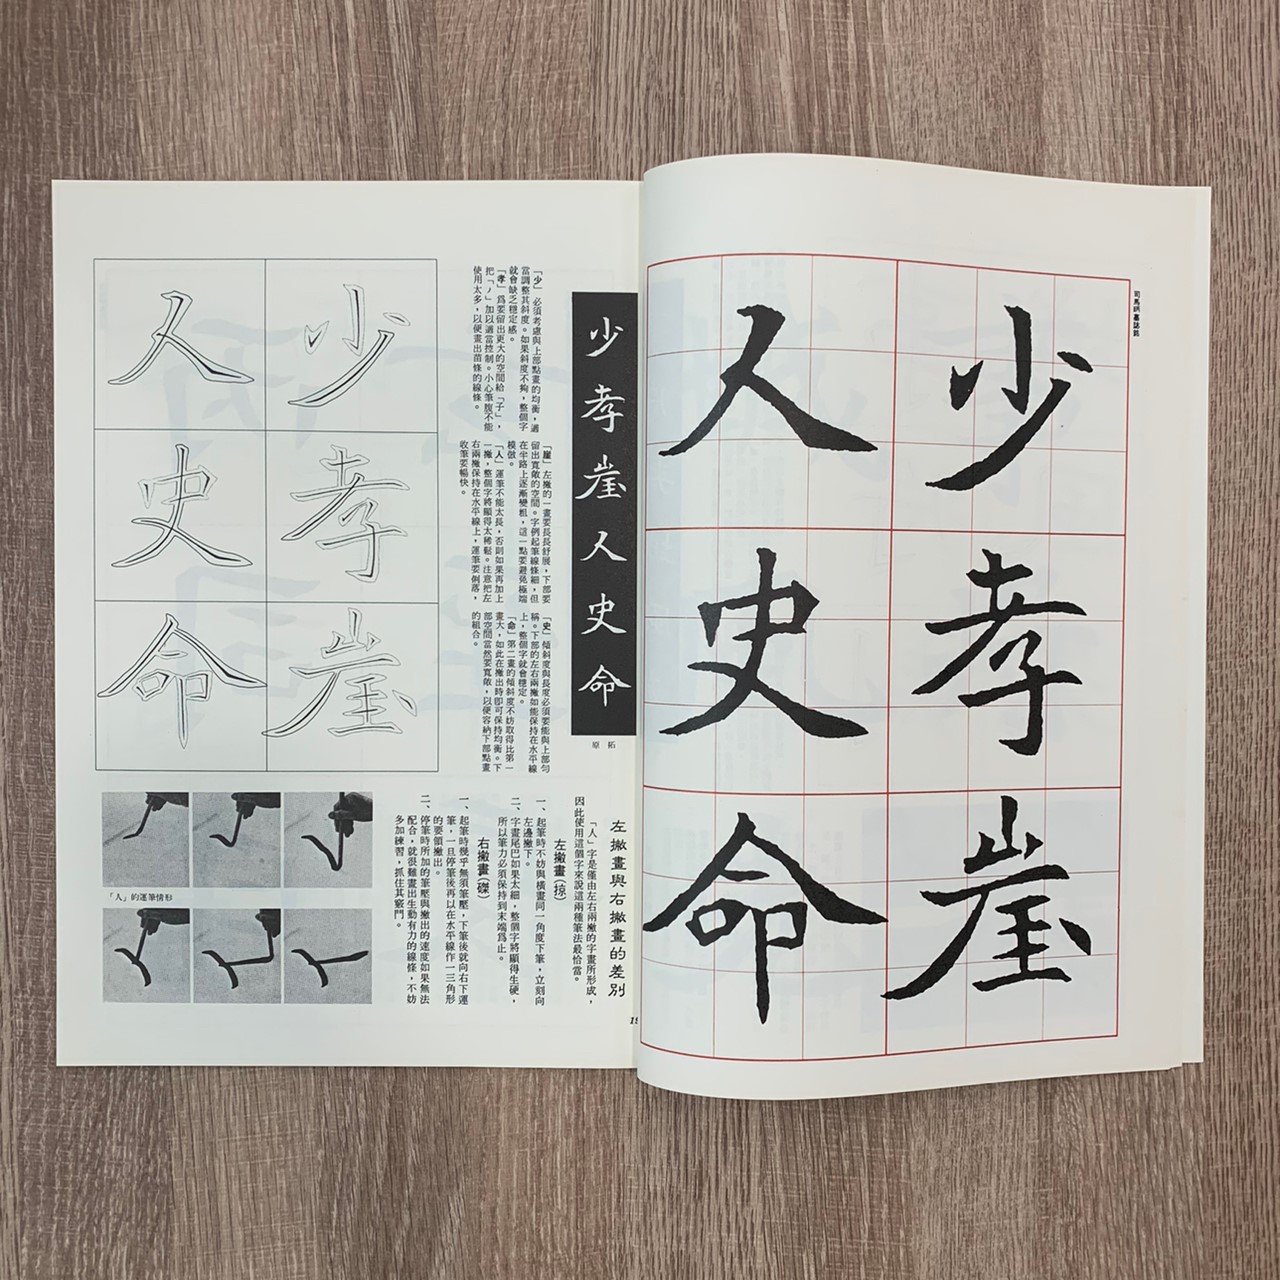 司馬昞墓誌銘
少孝崖
人史命
少孝崖人史命
原拓
「少」必須考慮與上部點畫的均衡,適
當調整其斜度。如果斜度不夠,整個字
就會缺乏穩定感。
「孝」爲要留出更大的空間給「子」,
把「ノ」加以適當控制。小心筆腹不能
使用太多,以便畫出苗條的線條。
「崖」左撇的一畫要長長舒展,下部要
留出寬敞的空間。字例起筆線條細,但
在半路上逐漸變粗,這一點要避免極端
模倣。
「人」運筆不能太長,否則如果再加上
一撇,整個字將顯得太稀鬆。注意把左
右兩撇保持在水平線上,運筆要俐落,
收筆要暢快。
「史」傾斜度與長度必須要能與上部勻
稱。下部的左右兩撇如能保持在水平線
上,整個字就會穩定。
「命」第二畫的傾斜度不妨取得比第一
畫大,如此在撇出時即可保持均衡。下
部空間當然要寬敞,以便容納下部點畫
的組合。
少孝崖
人史命
左撇畫與右撇畫的差別
「人」字是僅由左右兩撇的字畫所形成,
因此使用這個字來說這兩種筆法最恰當。
左撇畫(掠)
一、起筆時不妨與橫畫同一角度下筆,立刻向
左邊撇下。
二、字畫尾巴如果太細,整個字將顯得生硬,
所以筆力必須保持到末端爲止。
右撇畫(磔)
一、起筆時幾乎無須筆壓,下筆後就向右下運
筆,一旦停筆後再以在水平線作一三角形
的要領撇出。
二、停筆時所加的筆壓與撇出的速度如果無法
配合,就很難畫出生動有力的線條,不妨
多加練習,抓住其竅門。
「人」的運筆情形